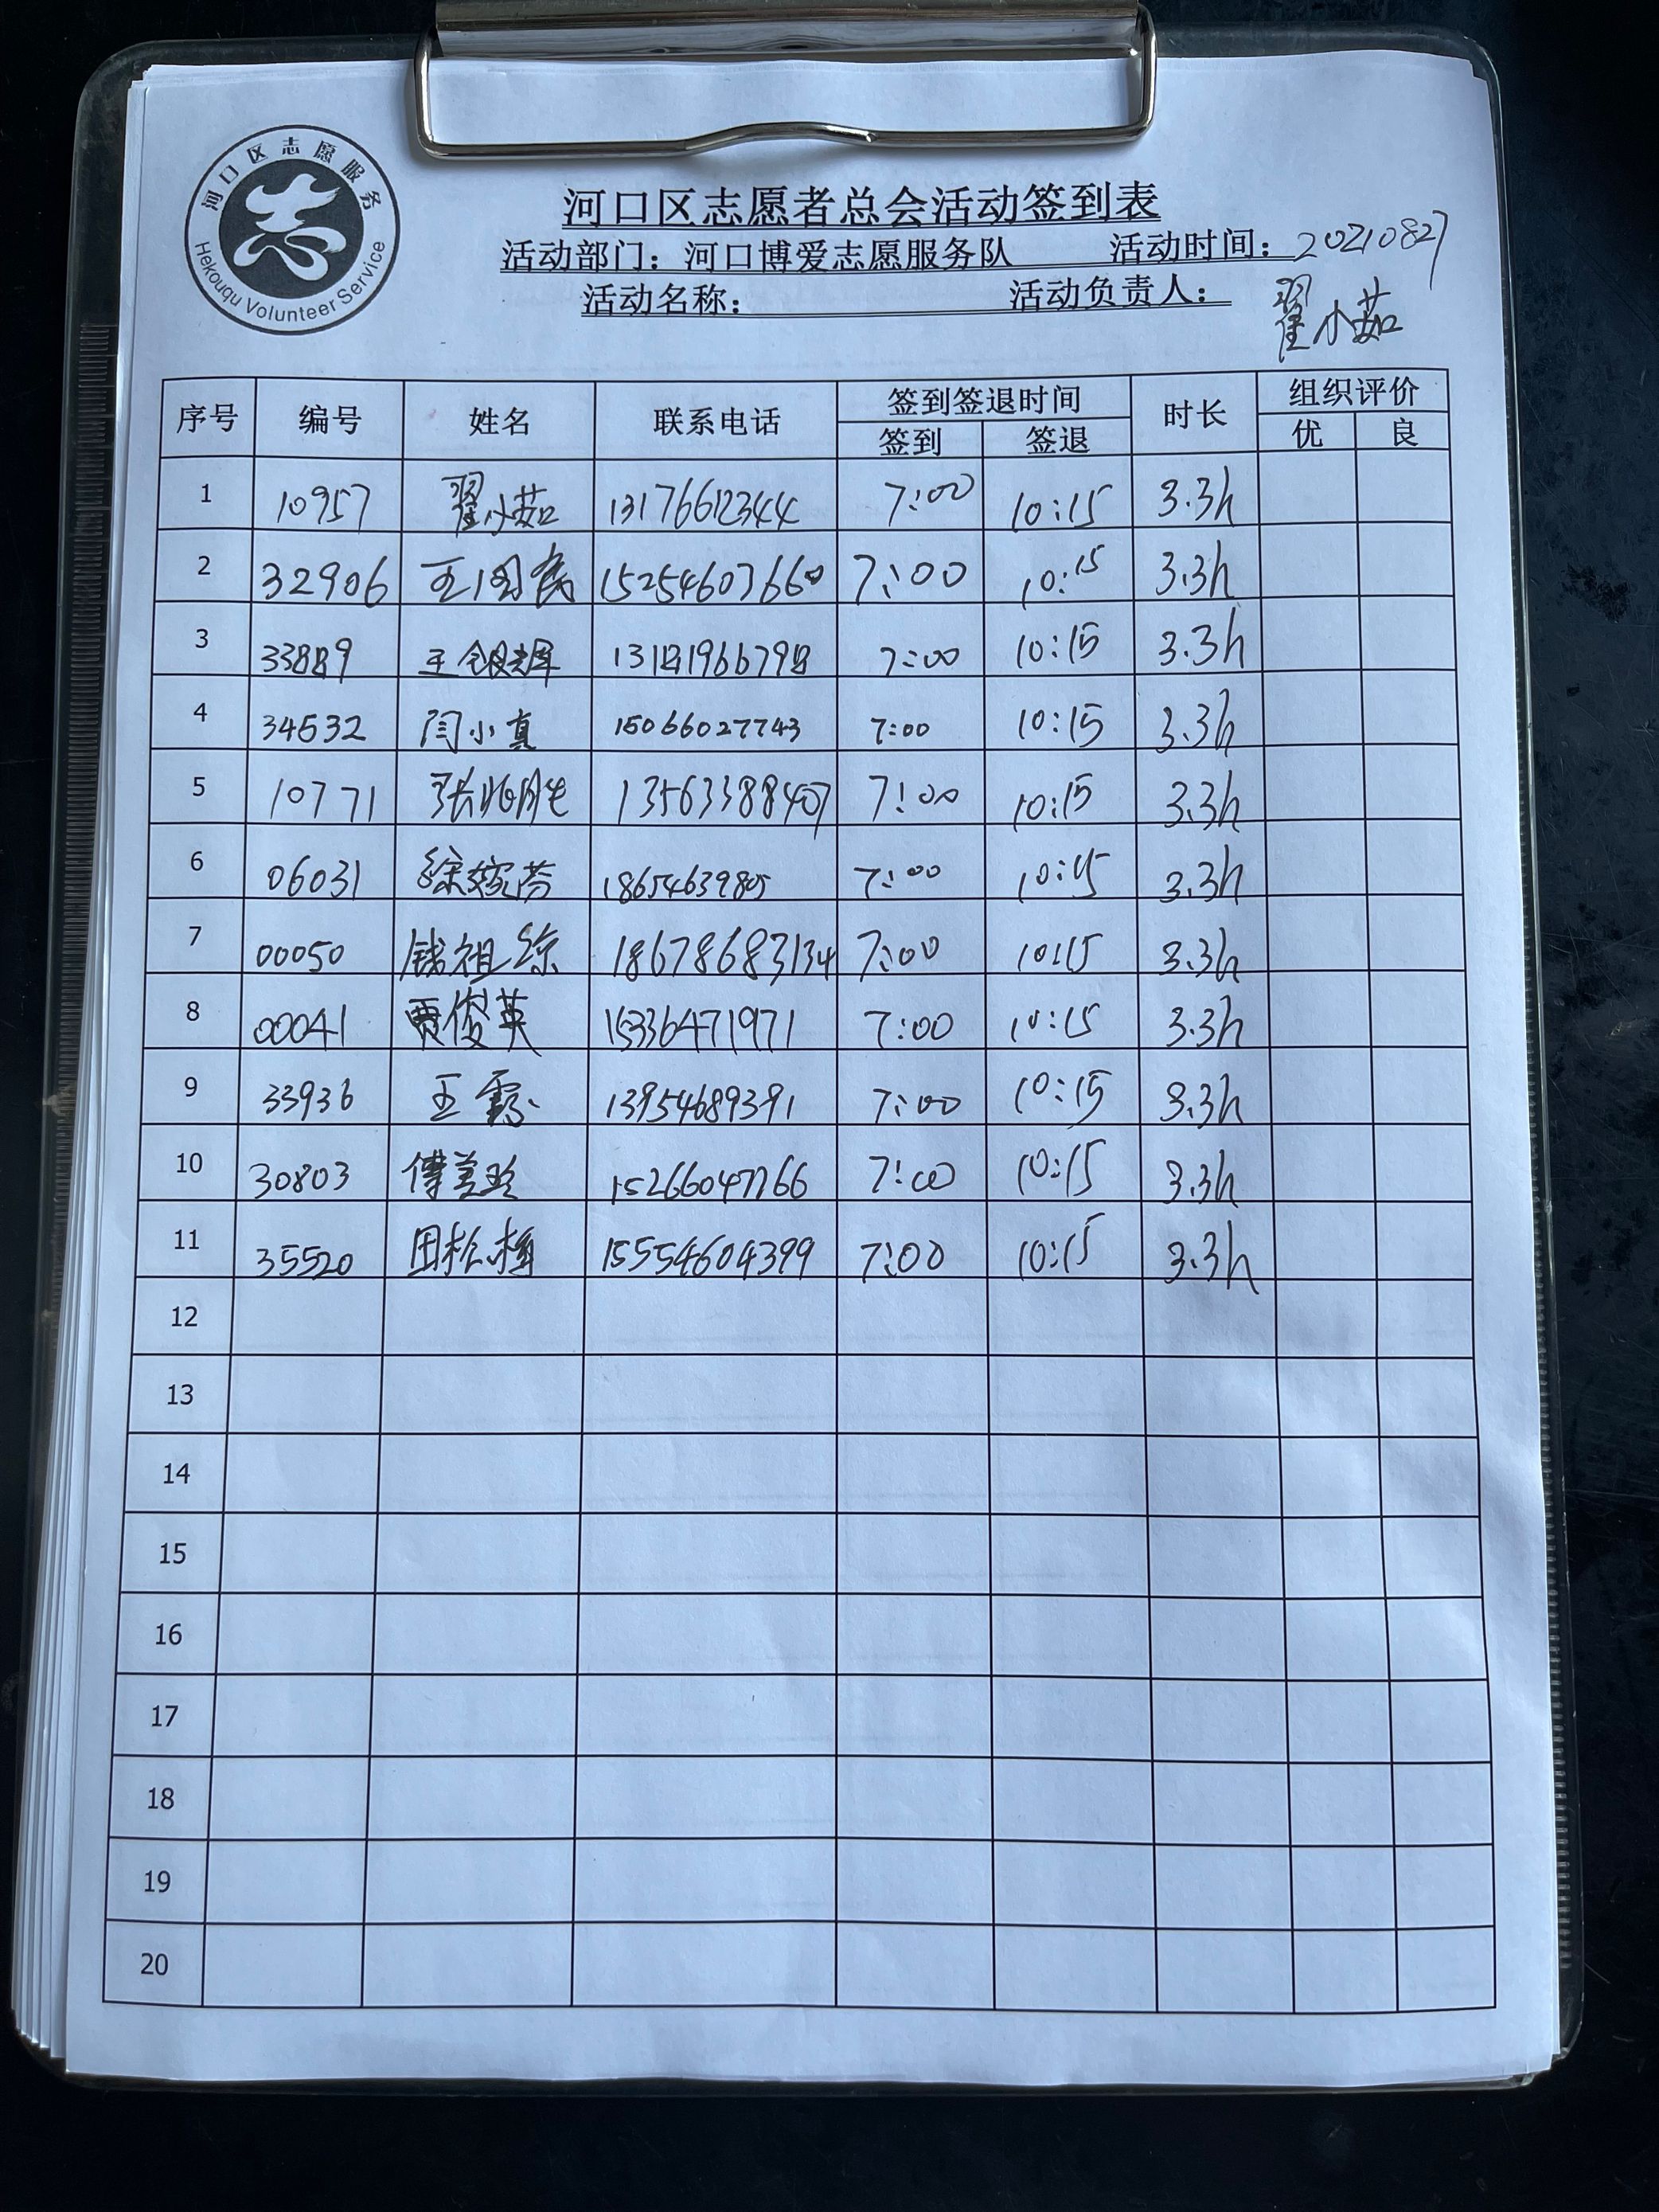 河口区志愿服务
志
Hekouqu Volunteer Service
河口区志愿者总会活动签到表
活动部门：河口博爱志愿服务队 活动时间：20210827
活动名称： 活动负责人： 翟小茹
序号 编号 姓名 联系电话 签到签退时间 时长 组织评价
签到 签退 优 良
1 10957 翟小茹 13176612344 7:00 10:15 3.3h
2 32906 王国民 15254603660 7:00 10:15 3.3h
3 33889 王银辉 7:00 10:15 3.3h
4 34532 闫小真 15066027743 7:00 10:15 3.3h
5 10771 张兆胜 13563388407 7:00 10:15 3.3h
6 06031 徐婉芬 18654639805 7:00 10:15 3.3h
7 00050 钱祖琼 18678683134 7:00 10:15 3.3h
8 00041 贾俊英 15336471971 7:00 10:15 3.3h
9 33936 王霞 13954689391 7:00 10:15 3.3h
10 30803 傅美玲 15266047766 7:00 10:15 3.3h
11 35520 田松梅 15554604399 7:00 10:15 3.3h
12
13
14
15
16
17
18
19
20